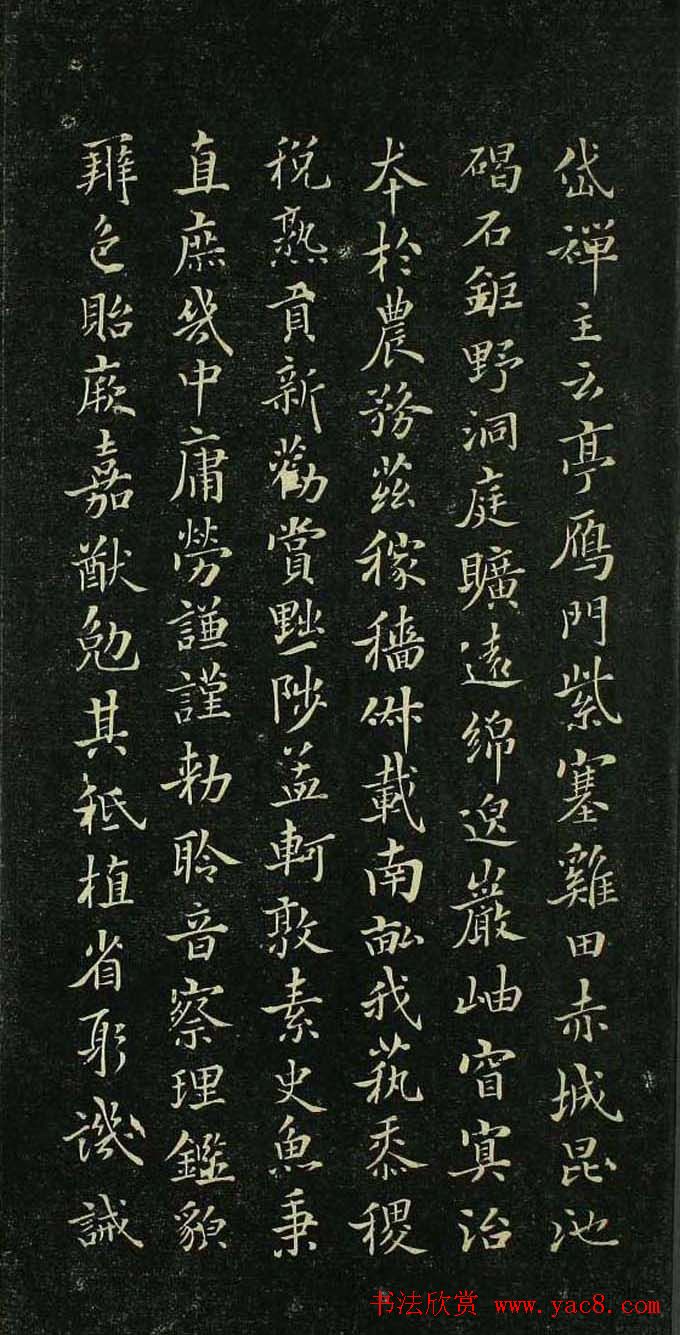 岱禪主云亭鴈門紫塞雞田赤城昆池
碣石鉅野洞庭曠遠綿邈巖岫窅寞治
本於農務茲稼穡俶載南畝我蓺黍稷
稅熟貢新勸賞黜陟孟軻敦素史魚秉
直庶幾中庸勞謙謹勅聆音察理鑑貌
辨色貽厥嘉猷勉其祗植省躬譏誡
书法欣赏 www.yac8.com